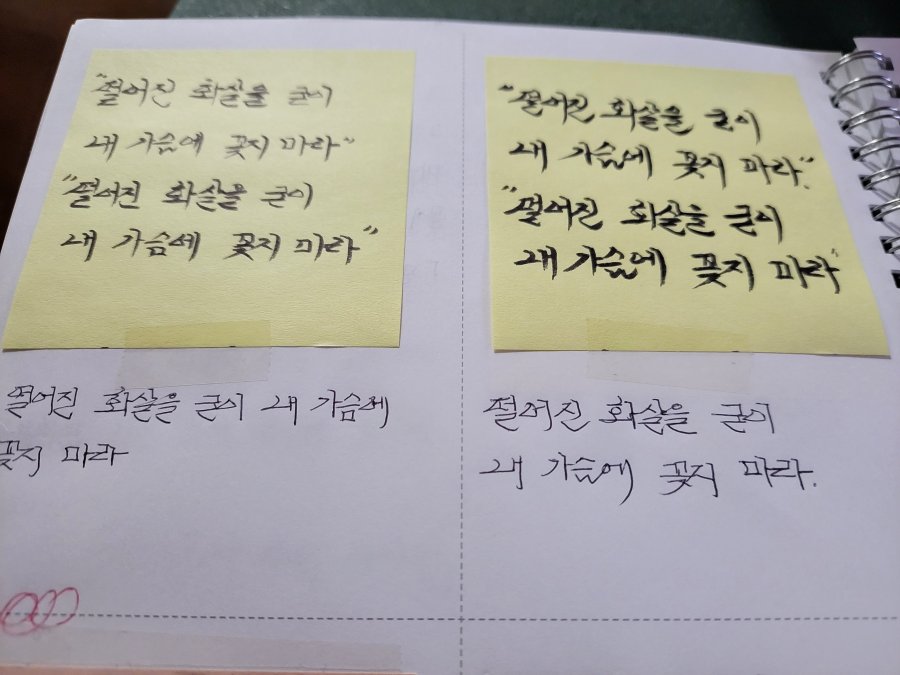 "떨어진 화살을 굳이
내 가슴에 꽂지 마라"
"떨어진 화살을 굳이
내 가슴에 꽂지 마라"
떨어진 화살을 굳이 내 가슴에
꽂지 마라
"떨어진 화살을 굳이
내 가슴에 꽂지 마라."
"떨어진 화살을 굳이
내 가슴에 꽂지 마라"
떨어진 화살을 굳이
내 가슴에 꽂지 마라.